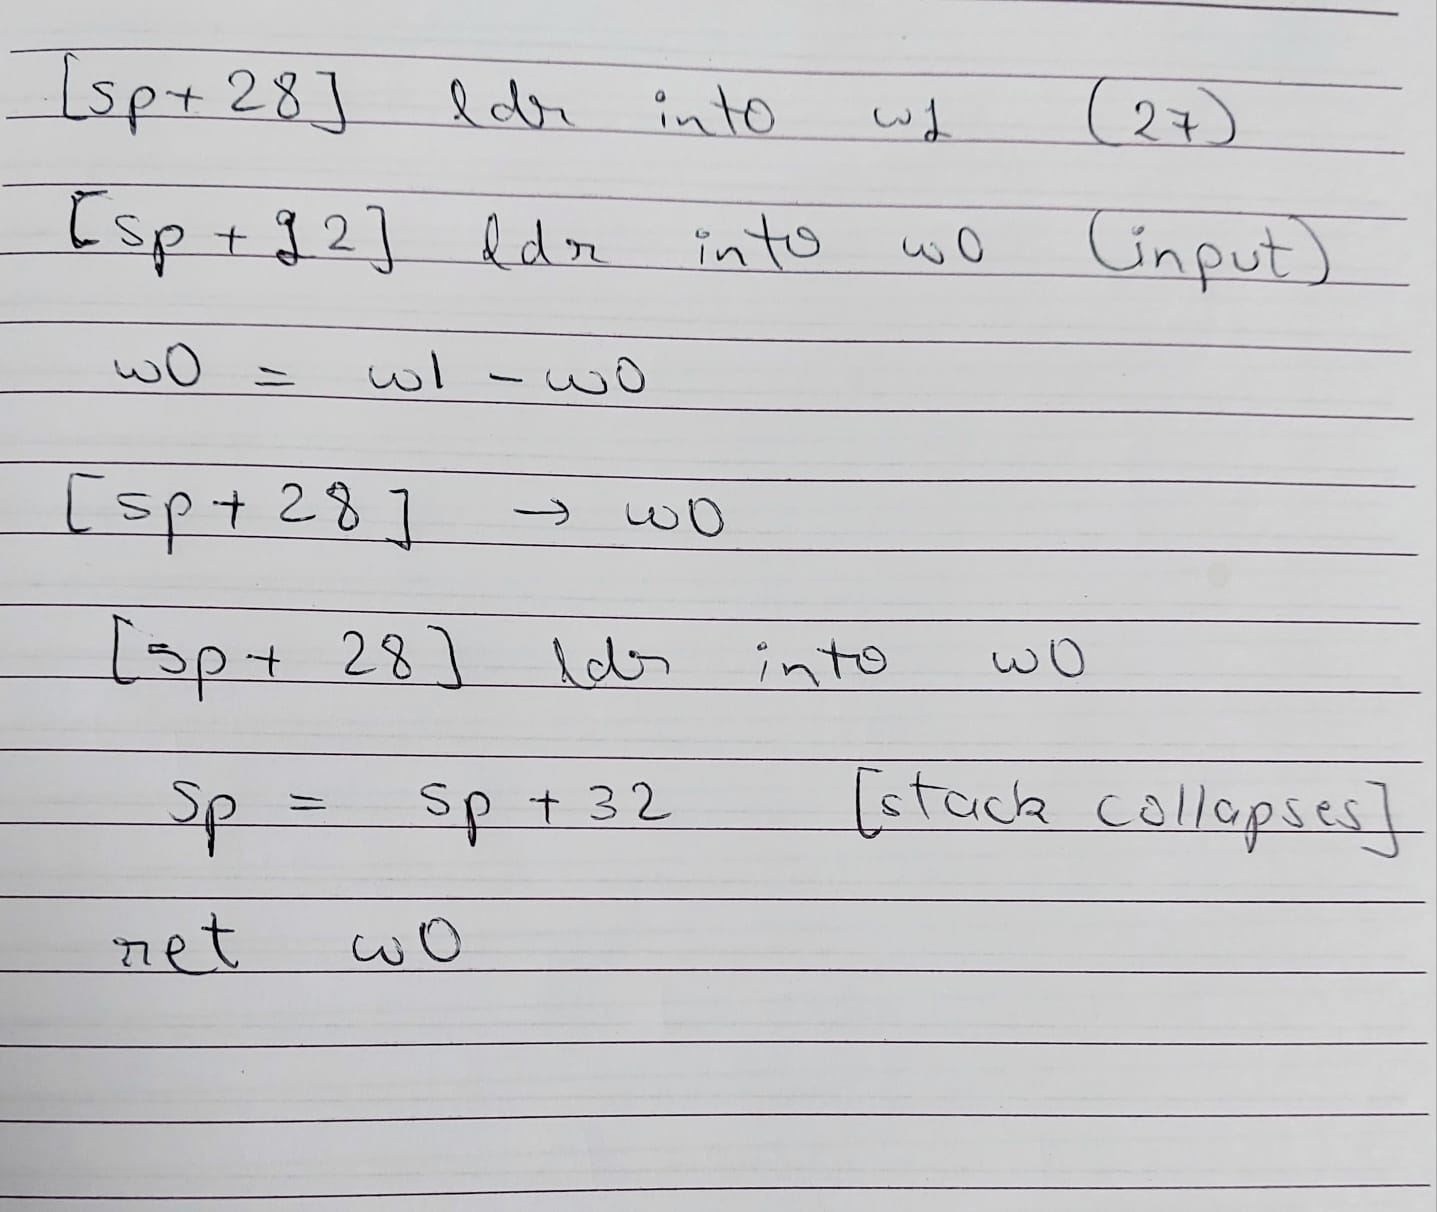 [sp+28] ldr into w1 (27)
[sp+12] ldr into w0 (input)
w0 = w1 - w0
[sp+28] → w0
[sp+28] ldr into w0
sp = sp+32 [stack collapses]
ret w0